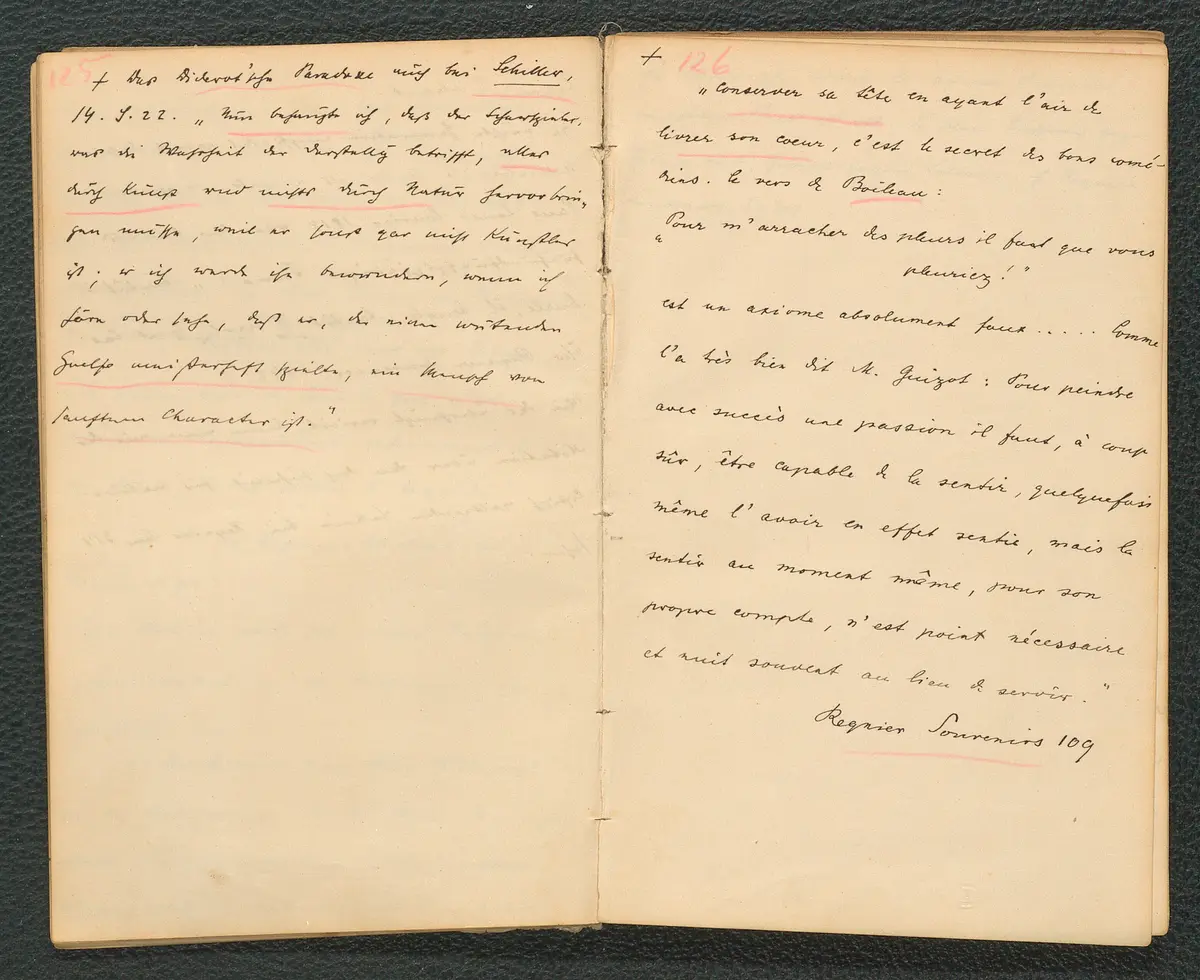 125
+ Das Diderot'sche Paradoxe auch bei Schiller,
14. S. 22. „Nun behaupte ich, daß der Schauspieler,
was die Wahrheit der Darstellg betrifft, alles
durch Kunst und nichts durch Natur hervorbrin„
gen müsse, weil er sonst gar nicht Künstler
ist; u ich werde ihn bewundern, wenn ich
höre oder sehe, daß er, der einen wütenden
Guelfo meisterhaft spielte, ein Mensch von
sanftem Character ist."
+ 126
„Conserver sa tête en ayant l'air de
livrer son coeur, c'est le secret des bons comé-
diens. Le vers de Boileau:
„Pour m'arracher des pleurs il faut que vous
pleuriez!"
est un axiome absolument faux ..... Comme
l'a très bien dit M. Guizot: Pour peindre
avec succès une passion il faut, à coup
sûr, être capable de la sentir, quelquefois
même l'avoir en effet sentie, mais la
sentir au moment même, pour son
propre compte, n'est point nécessaire
et nuit souvent au lieu de servir."
Regnier Souvenirs 109